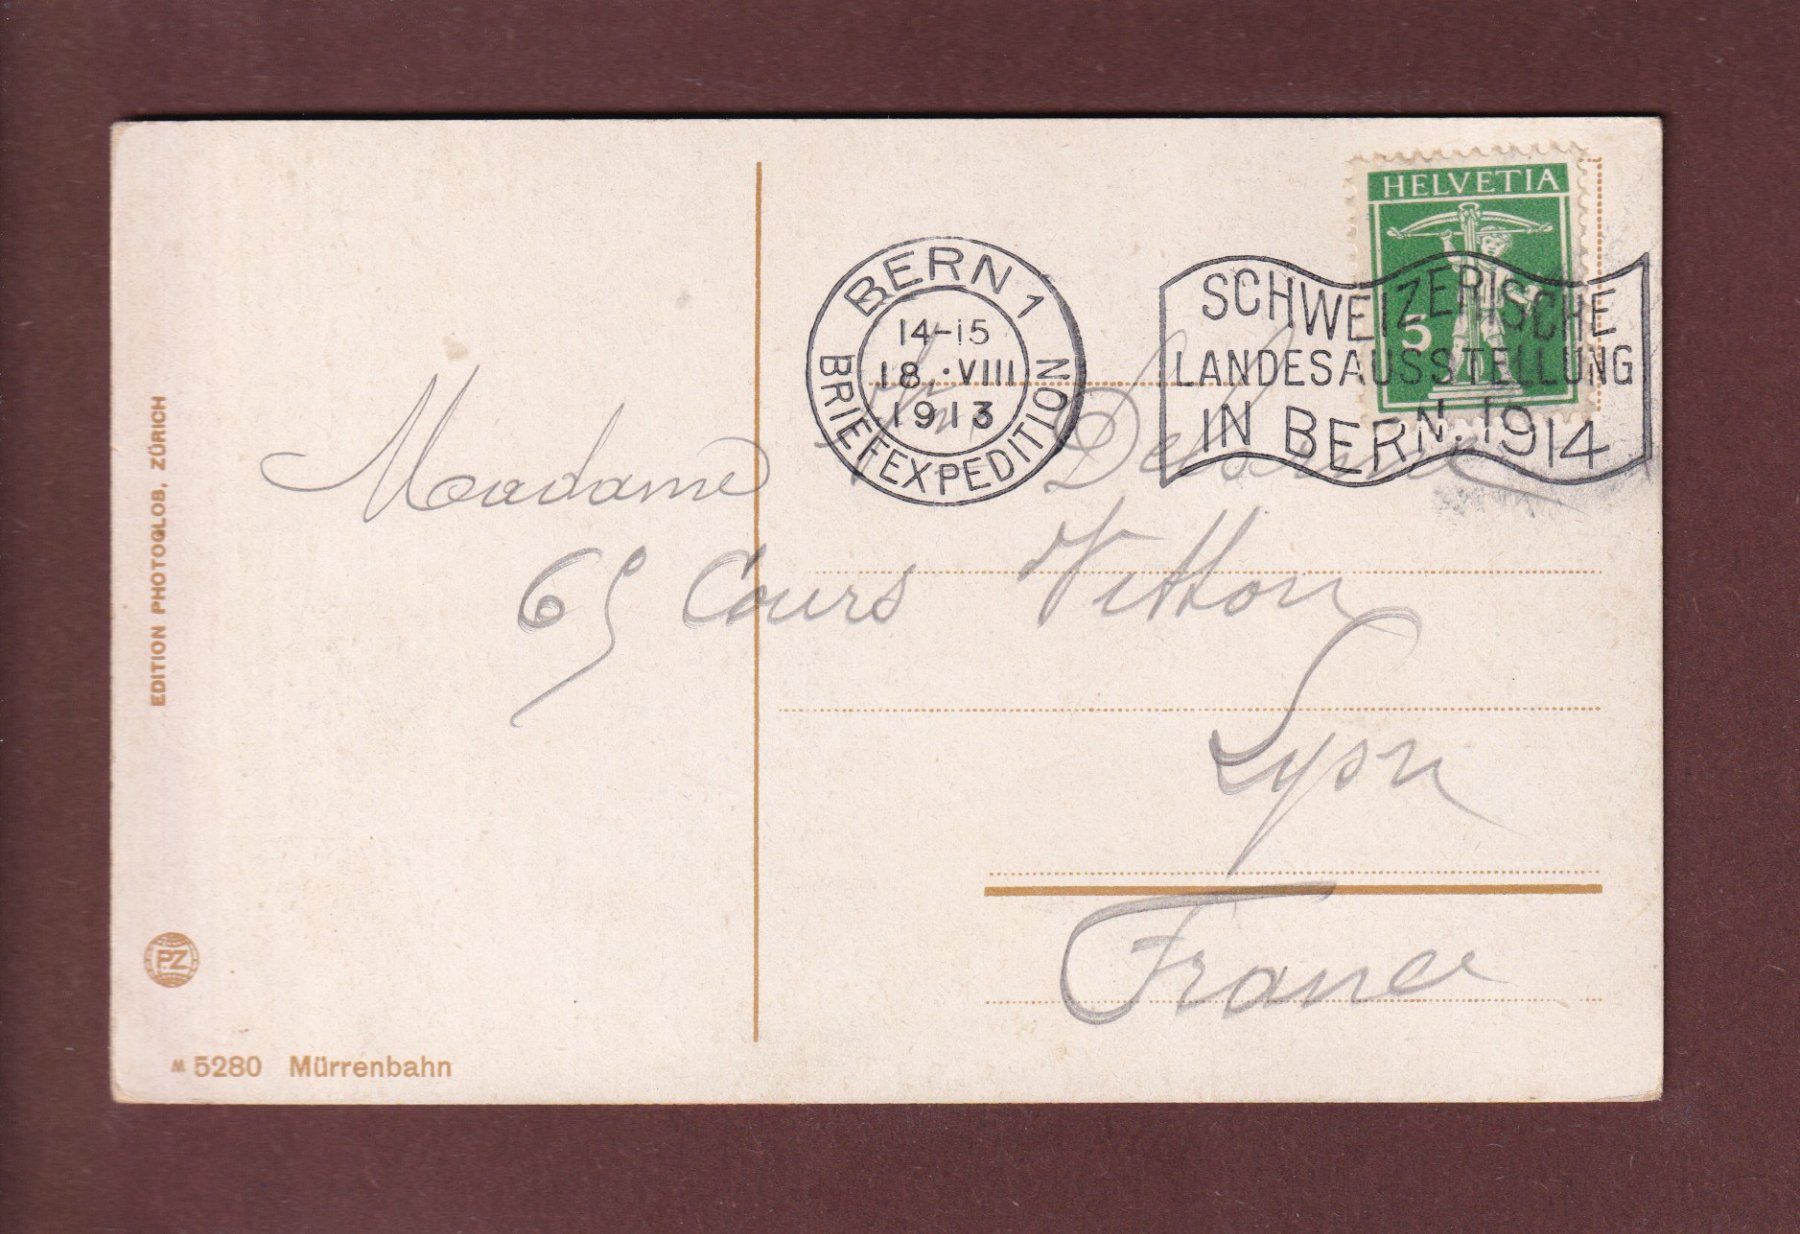 HELVETIA
5
BERN 1
14-15
18.VIII
1913
BRIEFEXPEDITION
SCHWEIZERISCHE
LANDESAUSSTELLUNG
IN BERN. 1914
Madame
65 Cours Vitton
Lyon
France
EDITION PHOTOGLOB, ZÜRICH
PZ
M 5280 Mürrenbahn